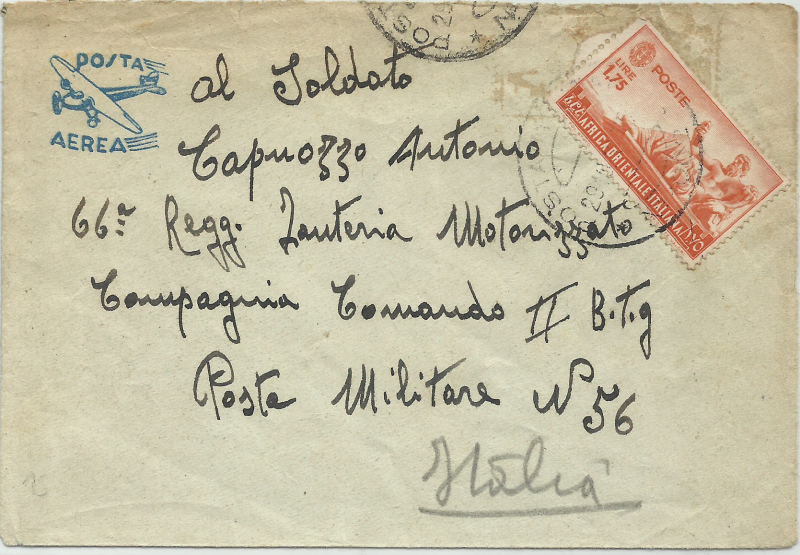 POSTA
AEREA
al Soldato
Capuozzo Antonio
66º Regg. Fanteria Motorizzato
Compagnia Comando II B.t.g
Posta Militare N 56
Italia
LIRE 1,75
POSTE
AFRICA ORIENTALE ITALIANA